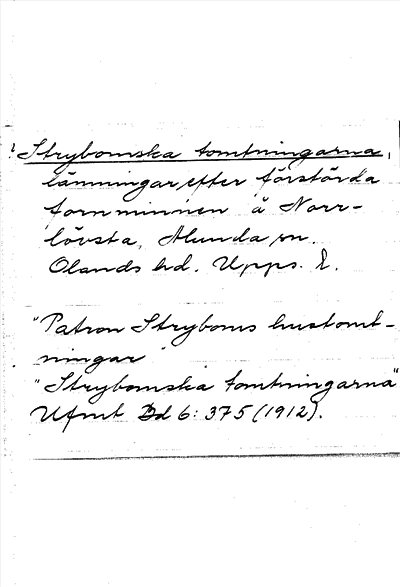 ! Strybomska tomtningarna,
lämningar efter förstörda
fornminnen å Norr-
lövsta, Alunda sn.
Olands hd. Upps. l.
"Patron Stryboms hustomt-
ningar"
"Strybomska tomtningarna"
Ufmt Bd 6: 375 (1912).